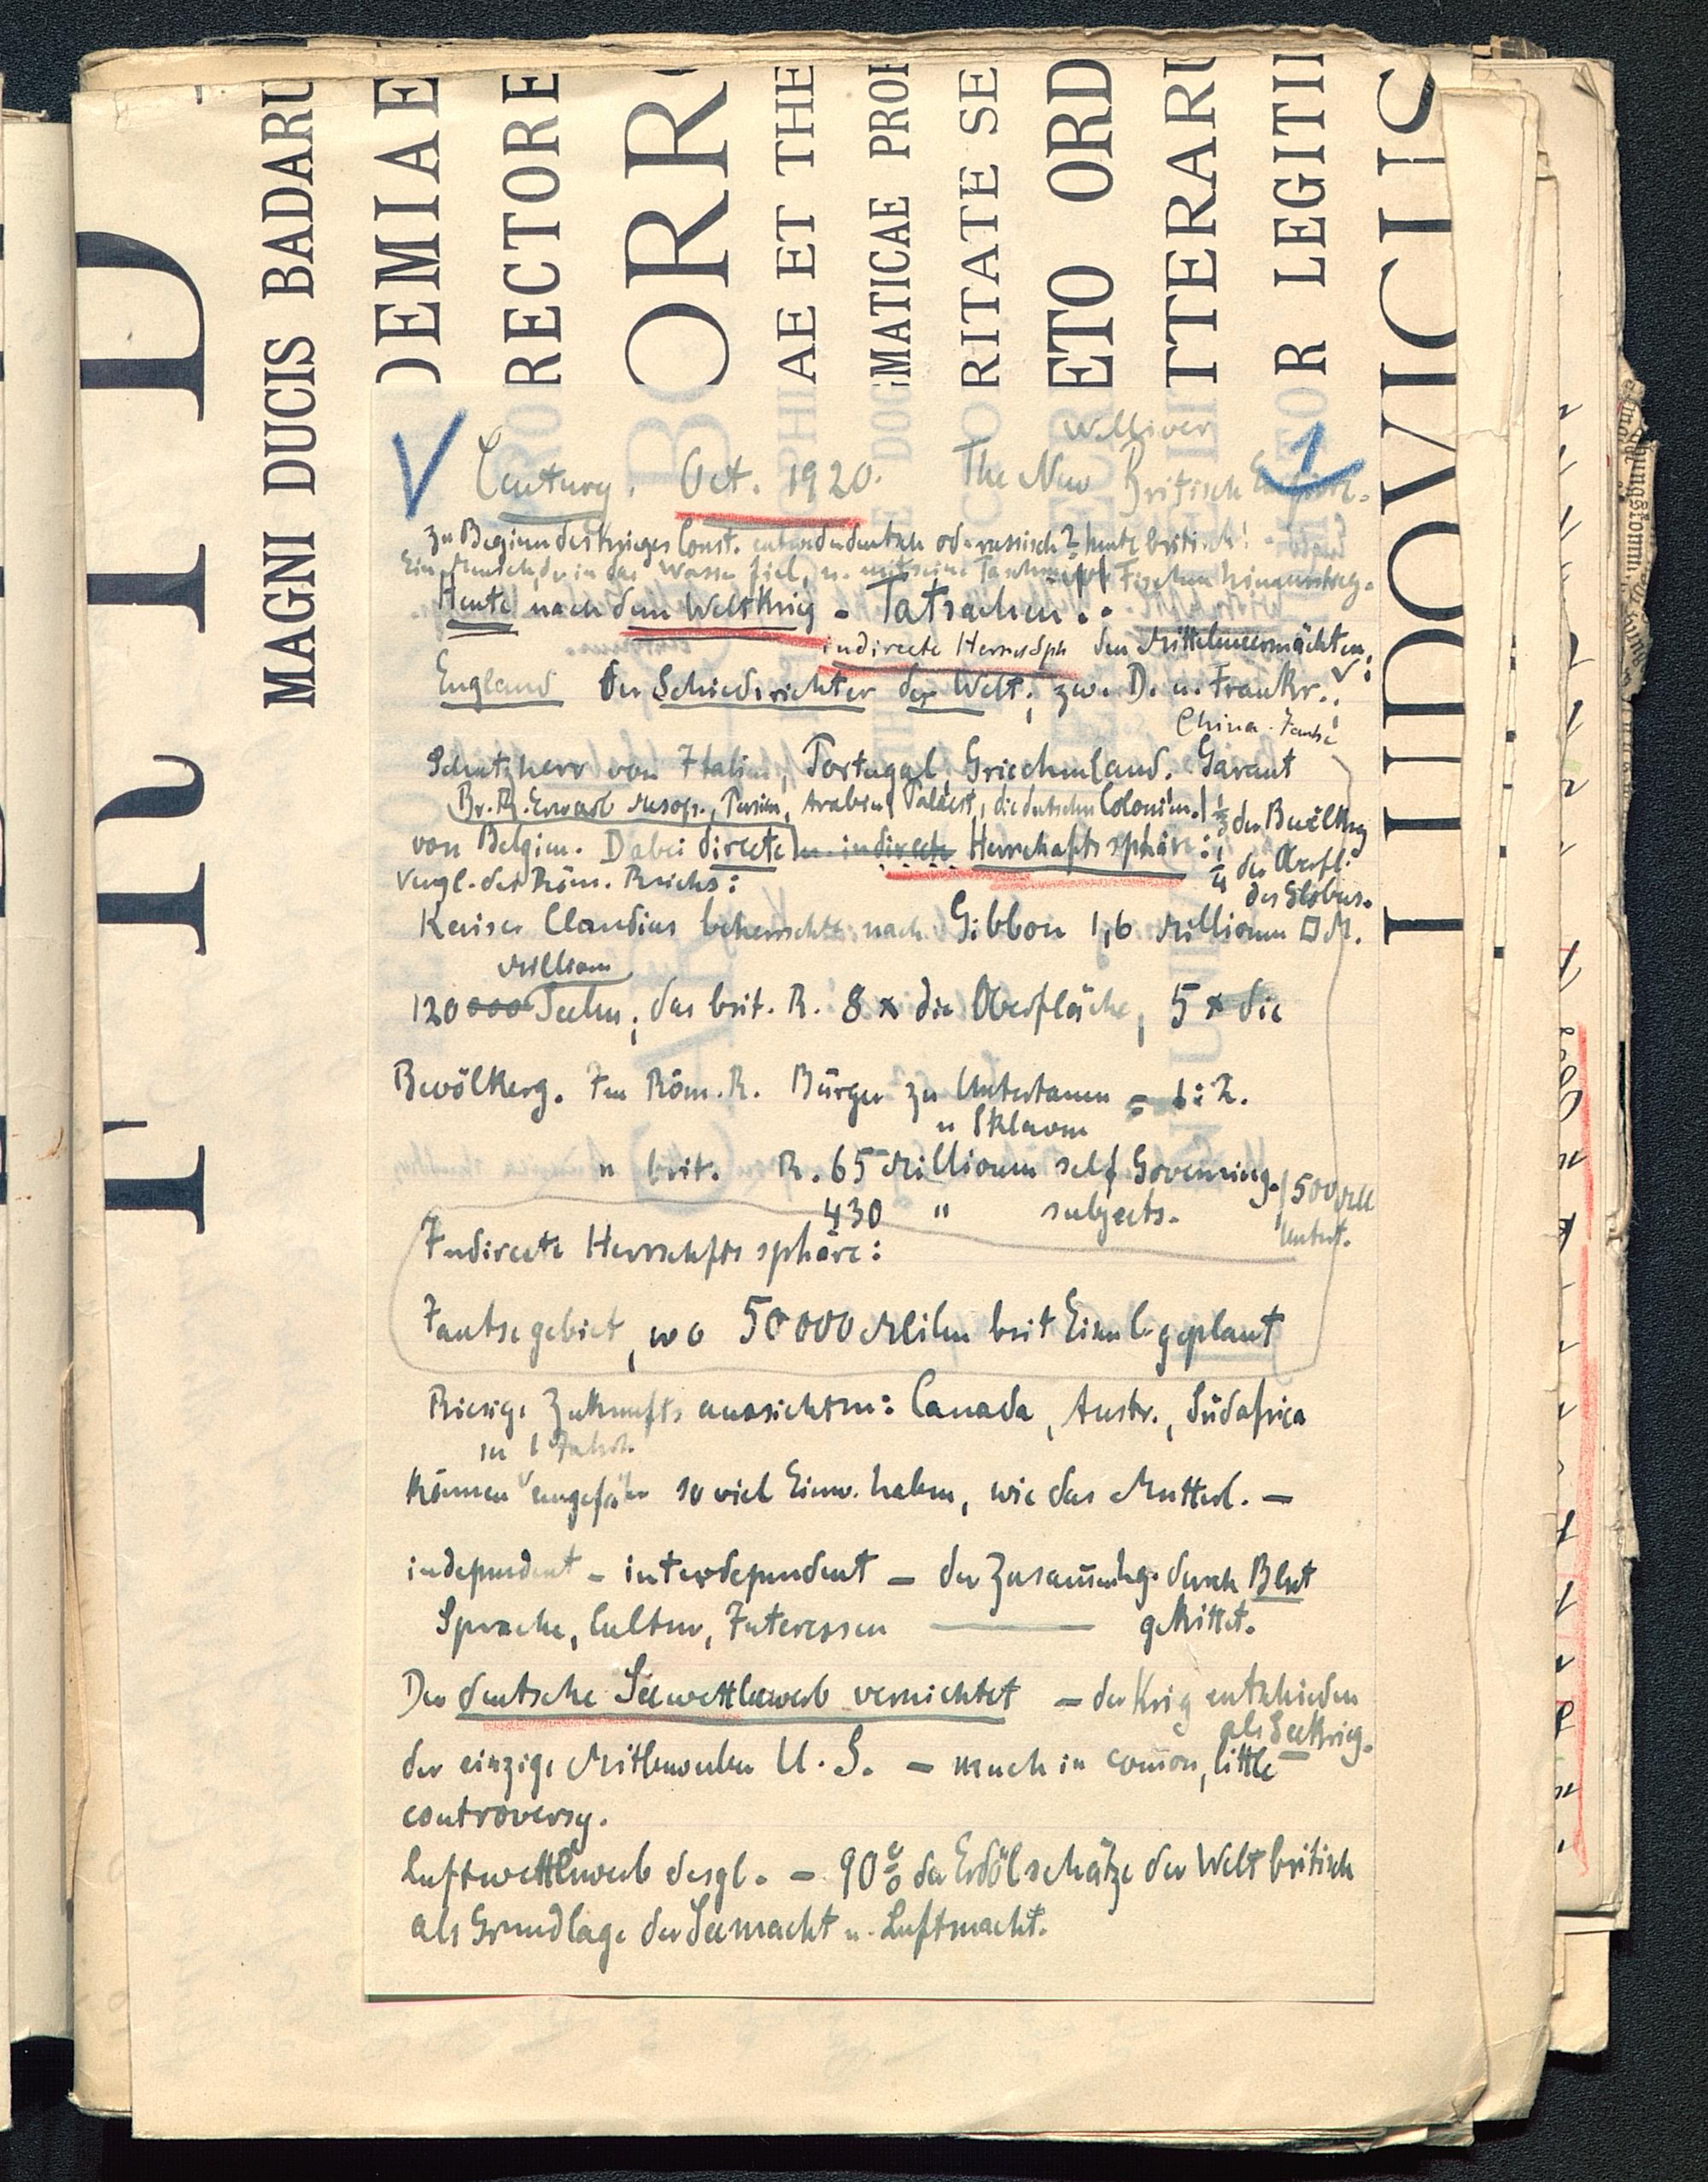 FRID
MAGNI DUCIS BADARU
DEMIAE
PRORECTORE
BORR
PHIAE ET THE
DOGMATICAE PROF
ORITATE SE
CRETO ORD
LITTERARU
TOR LEGITI
LUDOVICUS
Williver
V Century. Oct. 1920. The New Britisch Empire. 1
Zu Beginn des Krieges Const. entweder deutsch od. russisch? heute britisch!
Ein Mensch, der in das Wasser fiel, u. mit seine Taschen voll Fischen hinausstieg.
Heute nach dem Weltkrieg - Tatsachen.
indirecte Herrschsph den Mittelmeermächten,
England der Schiedsrichter der Welt; zw. D. u. Frankr.
China
Schutzherr von Italien, Portugal, Griechenland. Garant
Br. R. Erwarb Mesop., Persien, Arabien, Paläst, die deutschen Colonien. 1/3 der Bevölkrg
von Belgien. Dabei directe u. indirecte Herrschaftssphäre: 1/4 der Oberfl.
Vergl. des Röm. Reichs: des Globus.
Kaiser Claudius beherrschte nach Gibbon 1,6 Millionen □M.
Millionen
120000 Seelen; das brit. R. 8 x die Oberfläche, 5 x die
Bevölkerg. Im Röm. R. Bürger zu Untertanen = 1:2.
u Sklaven
" brit. R. 65 Millionen self Governing. 500 Mill
430 " subjects. Untert.
Indirecte Herrschfts sphäre:
Jantsegebiet, wo 50000 Meilen brit Eisenb geplant
Riesige Zukunfts aussichten: Canada, Austr., Südafrica
in 1 Jahrh.
können ungefähr so viel Einw. haben, wie das Mutterl. —
independent - interdependent — der Zusammenhg. durch Blut
Sprache, Cultur, Interessen — gekittet.
Der deutsche Seewettbewerb vernichtet — der Krieg entschieden
als Seekrieg.
der einzige Mitbewerber U. S. — much in common, little
controversy.
Luftwettbewerb desgl. — 90% der Erdölschätze der Welt britisch
als Grundlage der Seemacht u. Luftmacht.